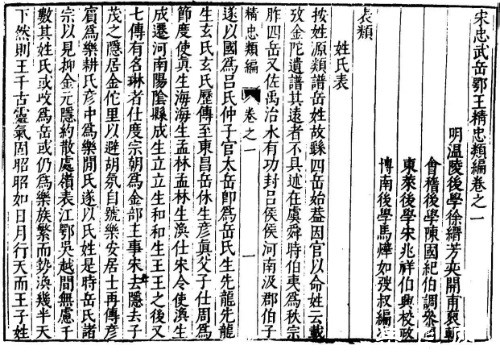 宋忠武岳鄂王精忠類編卷之一
明溫陵後學徐縉芳奕開甫
會稽後學陳國紀伯調叅
東萊後學宋兆祥伯興校
博南後學馬燁如弢叔編
表類
姓氏表
按姓源類譜岳姓故繇四岳始蓋因官以命姓云載
攷金陀遺譜其遠者不具述在虞舜時伯夷爲秩宗
胙四岳又佐禹治水有功封呂侯侯河南汲郡伯子
精忠類編 卷之一
遂以國爲呂氏仲子官太岳即爲岳氏生先龍先龍
生玄氏玄氏歷傳至東昌岳休生彥真父子仕周爲
節度使真生海海生孟林孟林生渙仕宋令使渙生
成遷河南陽陰縣成生立立生和和生王王之後又
七傳有名琳者仕度宗朝爲金部主事宋去隱去子
茂之隱居金佗里以避胡氛自號樂安居士再傳彥
賓爲樂耕氏彥中爲樂閒氏遂以氏姓是時岳氏諸
宗以見抑金元隱約散處嶺表江鄂吳越間無慮千
數其姓氏或攺爲岳或仍爲樂族繁而勢渙幾半天
下然則王千古靈氣固昭昭如日月行天而王子姓